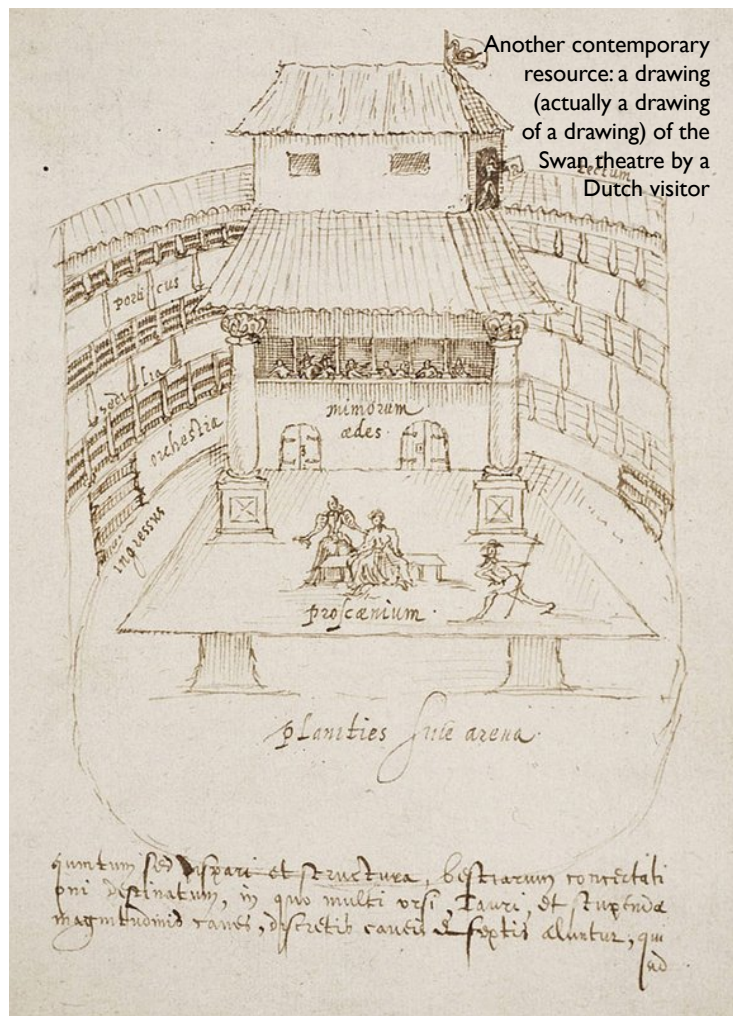 Another contemporary
resource: a drawing
(actually a drawing
of a drawing) of the
Swan theatre by a
Dutch visitor
tectum
porticus
sedilia
orchestra
ingressus
mimorum
ædes
proscænium
planities sive arena
quintum sed dispari et structura, bestiarum concertati
oni destinatum, in quo multi ursi, Tauri, et stupendæ
magnitudinis canes, discretis caveis & septis aluntur, qui
ad